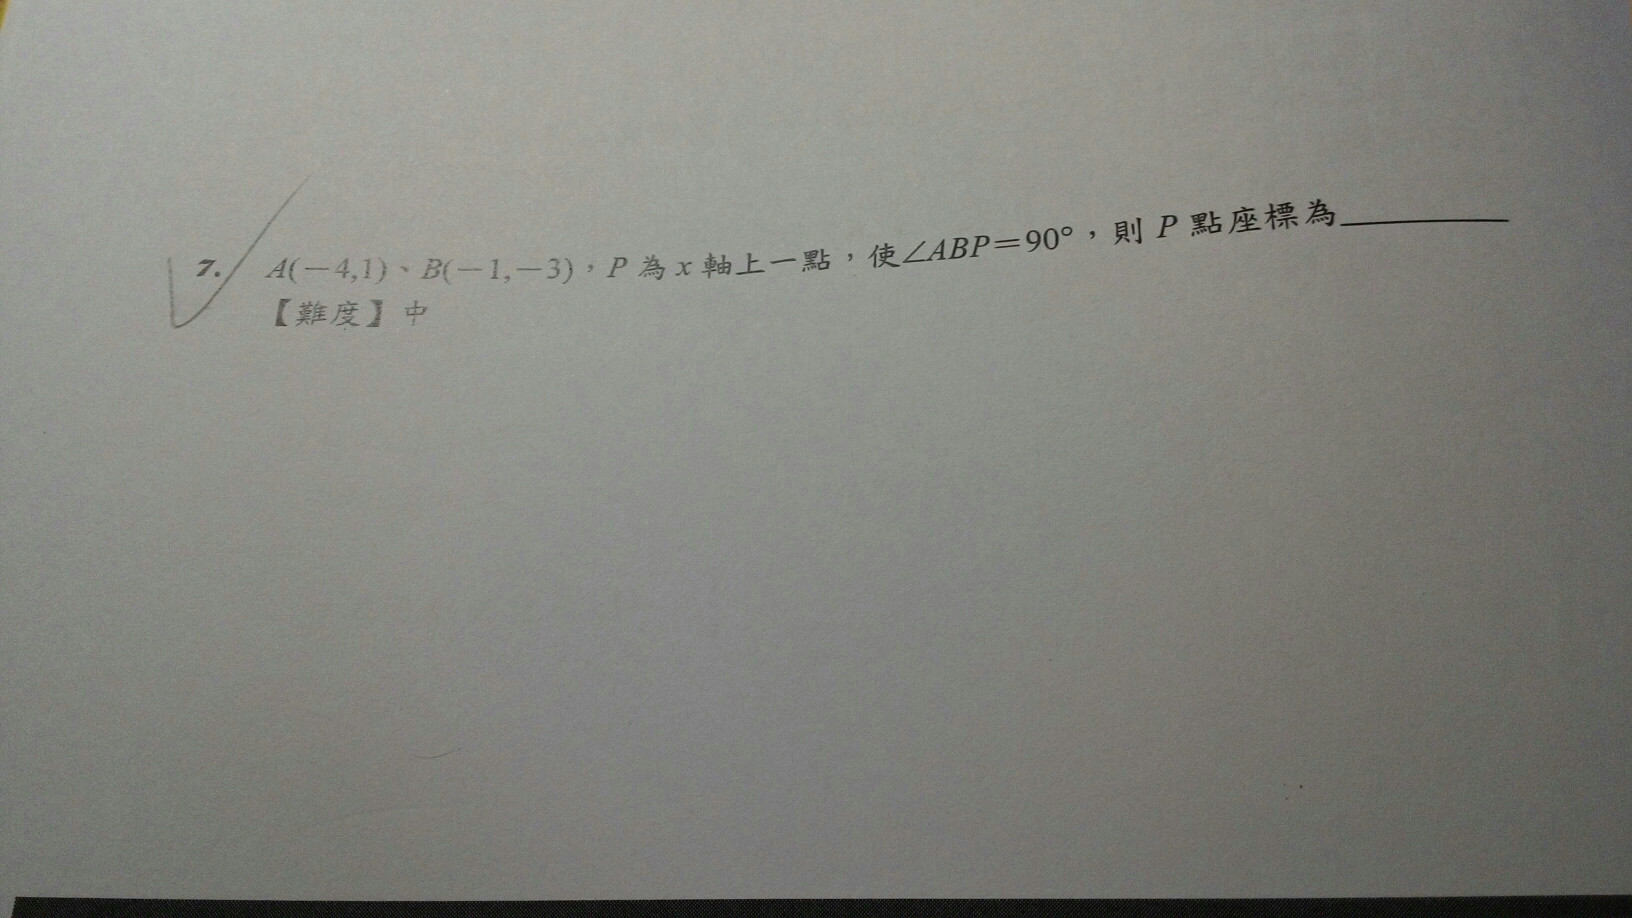 7. A(－4,1)、B(－1,－3)，P 為 x 軸上一點，使∠ABP＝90°，則 P 點座標為________
【難度】中